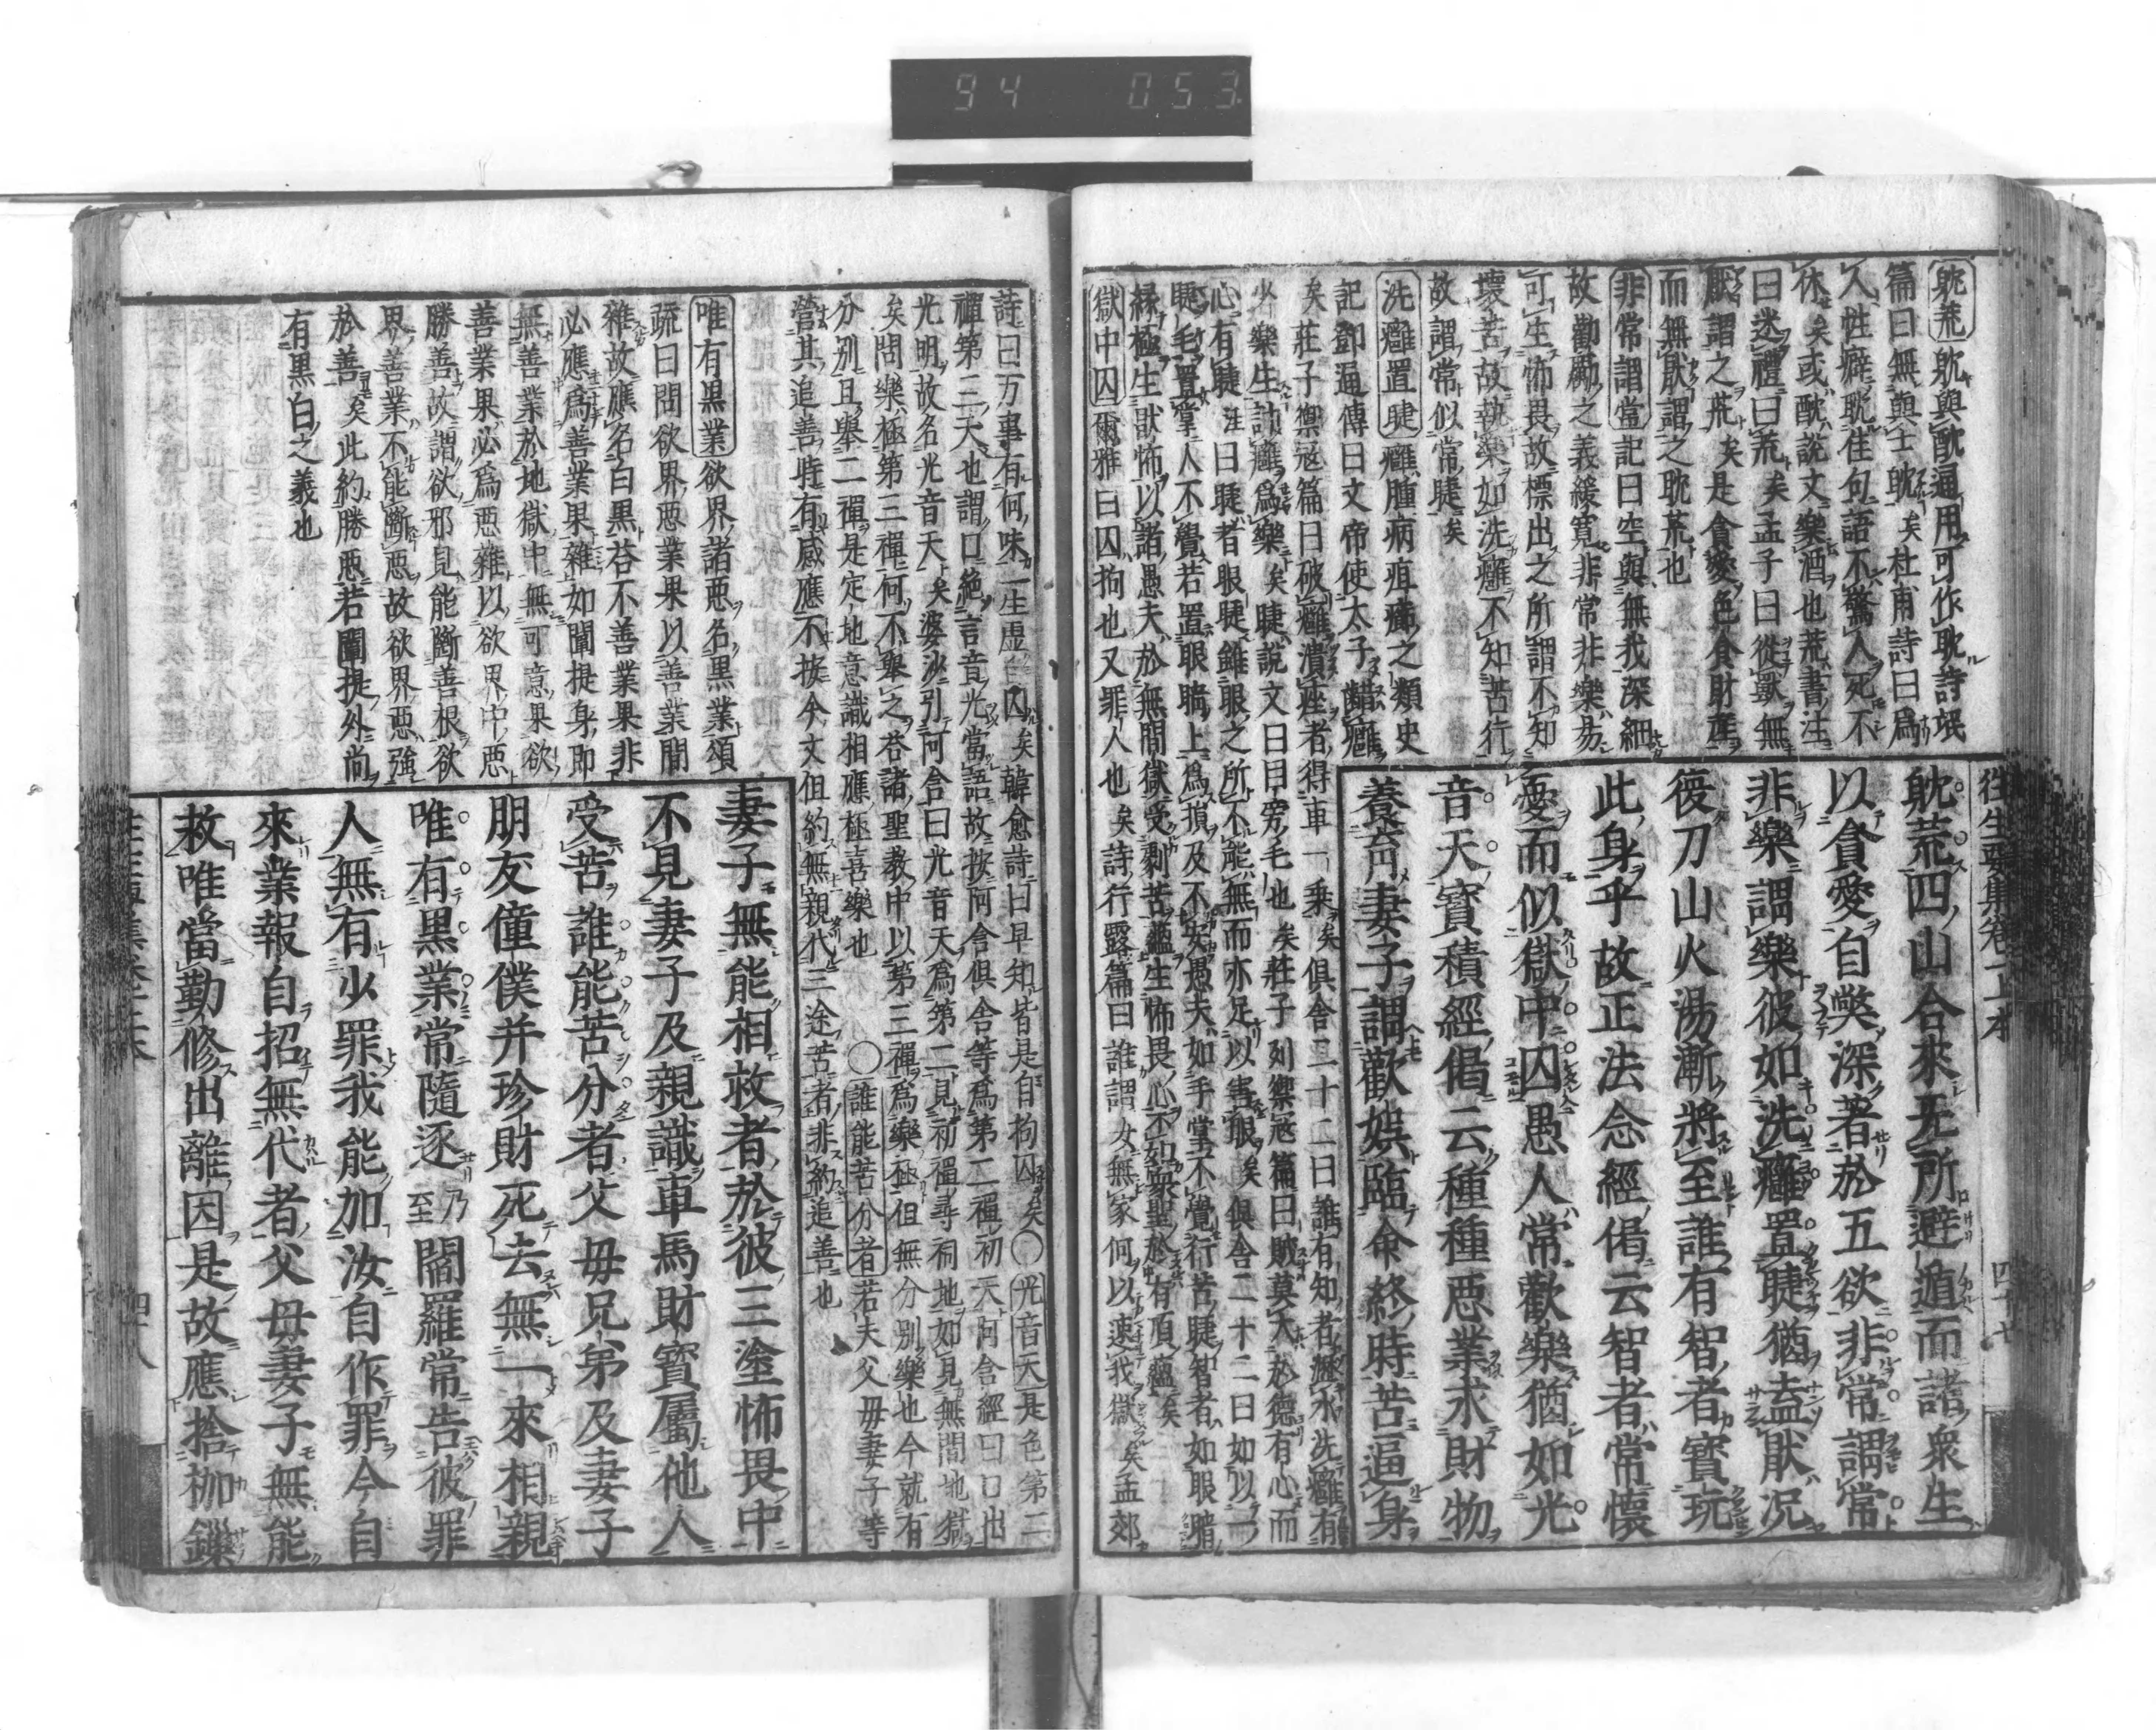 94 053
往生要集卷上本
四十七
躭荒躭與酖通用可作耽詩氓
篇曰無與士躭矣杜甫詩曰爲
人性癖耽佳句語不驚人死不
休矣或酖說文樂酒也荒書注
曰迷禮曰荒矣孟子曰從獸無
厭謂之荒矣是貪愛色貪財產
而無猒謂之耽荒也
非常謂常記曰空與無我深細
故勸勵之義緩寬非常非樂易
可生怖畏故標出之所謂不知
壞苦故執樂如洗癰不知苦行
故謂常似常睫矣
洗癰置睫癰腫病疽癰之類史
記鄧通傳曰文帝使太子齰癰
矣莊子禦冦篇曰破癰潰痤者得車一乘矣俱舍二十二曰誰有知者灑水洗癰有
少樂生計癰爲樂矣睫說文曰目旁毛也矣莊子列禦冦篇曰賊莫大於德有心而
心有睫注曰睫者眼睫雖眼之所不能無而亦足以害眼矣俱舍二十二曰如以一
睫毛置掌人不覺若置眼睛上爲損及不安愚夫如手掌不覺行苦睫智者如眼睛
緣極生猒怖以諸愚夫於無間獄受劇苦蘊生怖畏心不如衆聖於有頂蘊矣
獄中囚爾雅曰囚拘也又罪人也矣詩行露篇曰誰謂女無家何以速我獄矣孟郊
躭荒四山合來无所避遁而諸衆生
以貪愛自弊深著於五欲非常謂常
非樂謂樂彼如洗癰置睫猶盍猒况
復刀山火湯漸將至誰有智者寶玩
此身乎故正法念經偈云智者常懷
憂而似獄中囚愚人常歡樂猶如光
音天寳積經偈云種種惡業求財物
養育妻子謂歡娛臨命終時苦逼身
詩曰万事有何味一生虛自囚矣韓愈詩曰早知皆是自拘囚矣〇光音天是色第二
禪第三天也謂口絶言音光當語故按阿含俱舍等爲第二禪初天阿含經曰口出
光明故名光音天矣婆沙引阿含曰光音天爲第二見初禪尋伺地如見無間地獄
矣問樂極第三禪何不舉之荅諸聖教中以第三禪爲樂極但無分別樂也今就有
分別且舉二禪是定地意識相應極喜樂也〇誰能苦分者若夫父母妻子等
營其追善時有感應不按今文但約無親代三途苦者非約追善也
唯有黑業欲界諸惡名黑業頌
疏曰問欲界惡業果以善業間
雜故應名白黑荅不善業果非
必應爲善業果雜如闡提身即
無善業於地獄中無可意果欲
善業果必爲惡雜以欲界中惡
勝善故謂欲邪見能斷善根欲
界善業不能斷惡故欲界惡強
於善矣此約勝惡若闡提外尚
有黑白之義也
妻子無能相救者於彼三塗怖畏中
不見妻子及親識車馬財寳屬他人
受苦誰能苦分者父母兄弟及妻子
朋友僮僕并珍財死去無一來相親
唯有黑業常隨逐乃至閻羅常告彼罪
人無有少罪我能加汝自作罪今自
來業報自招無代者父母妻子無能
救唯當勤修出離因是故應捨枷鏁
四十八